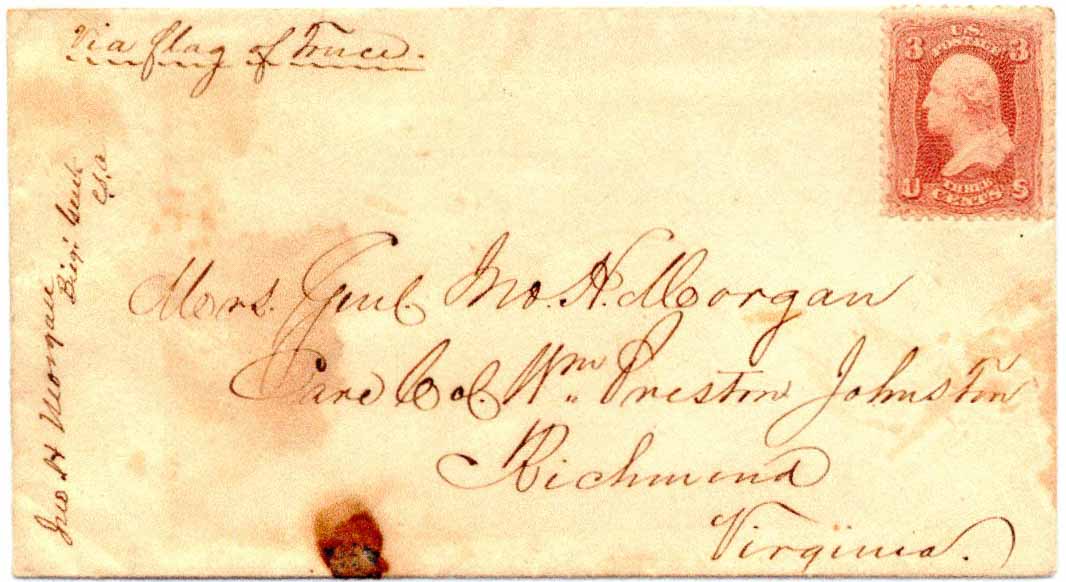 Via flag of Truce.
3 U.S. 3
POSTAGE
U THREE S
CENTS
Jno H Morgan
Brig: Genl
C.S.A
Mrs. Genl Jno. H. Morgan
Care Col. Wm Preston Johnston
Richmond
Virginia.